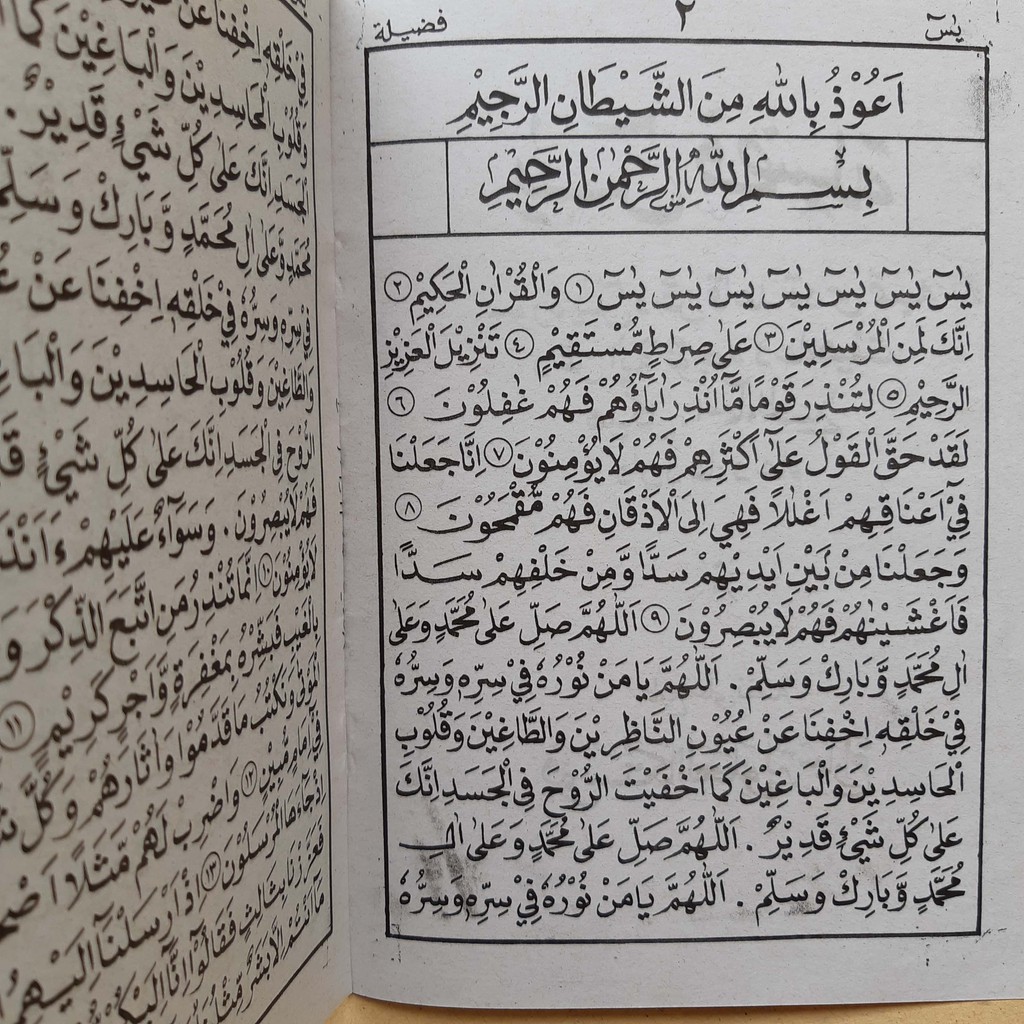 يٰسٓ
٢
فضيلة
اَعُوْذُ بِاللهِ مِنَ الشَّيْطَانِ الرَّجِيْمِ
بِسْمِ اللهِ الرَّحْمٰنِ الرَّحِيْمِ
يٰسٓ يٰسٓ يٰسٓ يٰسٓ يٰسٓ يٰسٓ يٰسٓ ① وَالْقُرْاٰنِ الْحَكِيْمِ ②
اِنَّكَ لَمِنَ الْمُرْسَلِيْنَ ③ عَلٰى صِرَاطٍ مُّسْتَقِيْمٍ ④ تَنْزِيْلَ الْعَزِيْزِ
الرَّحِيْمِ ⑤ لِتُنْذِرَ قَوْمًا مَّآ اُنْذِرَ اٰبَآؤُهُمْ فَهُمْ غٰفِلُوْنَ ⑥
لَقَدْ حَقَّ الْقَوْلُ عَلٰٓى اَكْثَرِهِمْ فَهُمْ لَا يُؤْمِنُوْنَ ⑦ اِنَّا جَعَلْنَا
فِيْٓ اَعْنَاقِهِمْ اَغْلٰلًا فَهِيَ اِلَى الْاَذْقَانِ فَهُمْ مُّقْمَحُوْنَ ⑧
وَجَعَلْنَا مِنْ بَيْنِ اَيْدِيْهِمْ سَدًّا وَّمِنْ خَلْفِهِمْ سَدًّا
فَاَغْشَيْنٰهُمْ فَهُمْ لَا يُبْصِرُوْنَ ⑨ اَللّٰهُمَّ صَلِّ عَلٰى مُحَمَّدٍ وَعَلٰى
اٰلِ مُحَمَّدٍ وَّبَارِكْ وَسَلِّمْ . اَللّٰهُمَّ يَا مَنْ نُوْرُهٗ فِيْ سِرِّهٖ وَسِرُّهٗ
فِيْ خَلْقِهٖ اِخْفِنَا عَنْ عُيُوْنِ النَّاظِرِيْنَ وَالطَّاغِيْنَ وَقُلُوْبِ
الْحَاسِدِيْنَ وَالْبَاغِيْنَ كَمَا اَخْفَيْتَ الرُّوْحَ فِى الْجَسَدِ اِنَّكَ
عَلٰى كُلِّ شَيْءٍ قَدِيْرٌ . اَللّٰهُمَّ صَلِّ عَلٰى مُحَمَّدٍ وَعَلٰى اٰلِ
مُحَمَّدٍ وَّبَارِكْ وَسَلِّمْ . اَللّٰهُمَّ يَا مَنْ نُوْرُهٗ فِيْ سِرِّهٖ وَسِرُّهٗ
فِيْ خَلْقِهٖ اِخْفِنَا عَنْ
وَقُلُوْبِ الْحَاسِدِيْنَ وَالْبَاغِيْنَ كَمَا
الْجَسَدِ اِنَّكَ عَلٰى كُلِّ شَيْءٍ قَدِيْرٌ .
مُحَمَّدٍ وَّعَلٰى اٰلِ مُحَمَّدٍ وَّبَارِكْ وَسَلِّمْ
فِيْ سِرِّهٖ وَسِرُّهٗ فِيْ خَلْقِهٖ اِخْفِنَا عَنْ
وَالطَّاغِيْنَ وَقُلُوْبِ الْحَاسِدِيْنَ وَالْبَاغِ
الرُّوْحَ فِى الْجَسَدِ اِنَّكَ عَلٰى كُلِّ شَيْءٍ قَ
فَهُمْ لَا يُبْصِرُوْنَ . وَسَوَآءٌ عَلَيْهِمْ ءَاَنْذَ
لَا يُؤْمِنُوْنَ ⑩ اِنَّمَا تُنْذِرُ مَنِ اتَّبَعَ الذِّكْرَ وَ
بِالْغَيْبِ فَبَشِّرْهُ بِمَغْفِرَةٍ وَّاَجْرٍ كَرِيْمٍ ⑪
الْمَوْتٰى وَنَكْتُبُ مَا قَدَّمُوْا وَاٰثَارَهُمْ وَكُلَّ شَ
فِيْٓ اِمَامٍ مُّبِيْنٍ ⑫ وَاضْرِبْ لَهُمْ مَّثَلًا اَصْحٰ
اِذْ جَآءَهَا الْمُرْسَلُوْنَ ⑬ اِذْ اَرْسَلْنَآ اِلَيْهِمُ
فَعَزَّزْنَا بِثَالِثٍ فَقَالُوْٓا اِنَّآ اِلَيْكُمْ
مَآ اَنْتُمْ اِلَّا بَشَرٌ مِّثْلُنَا